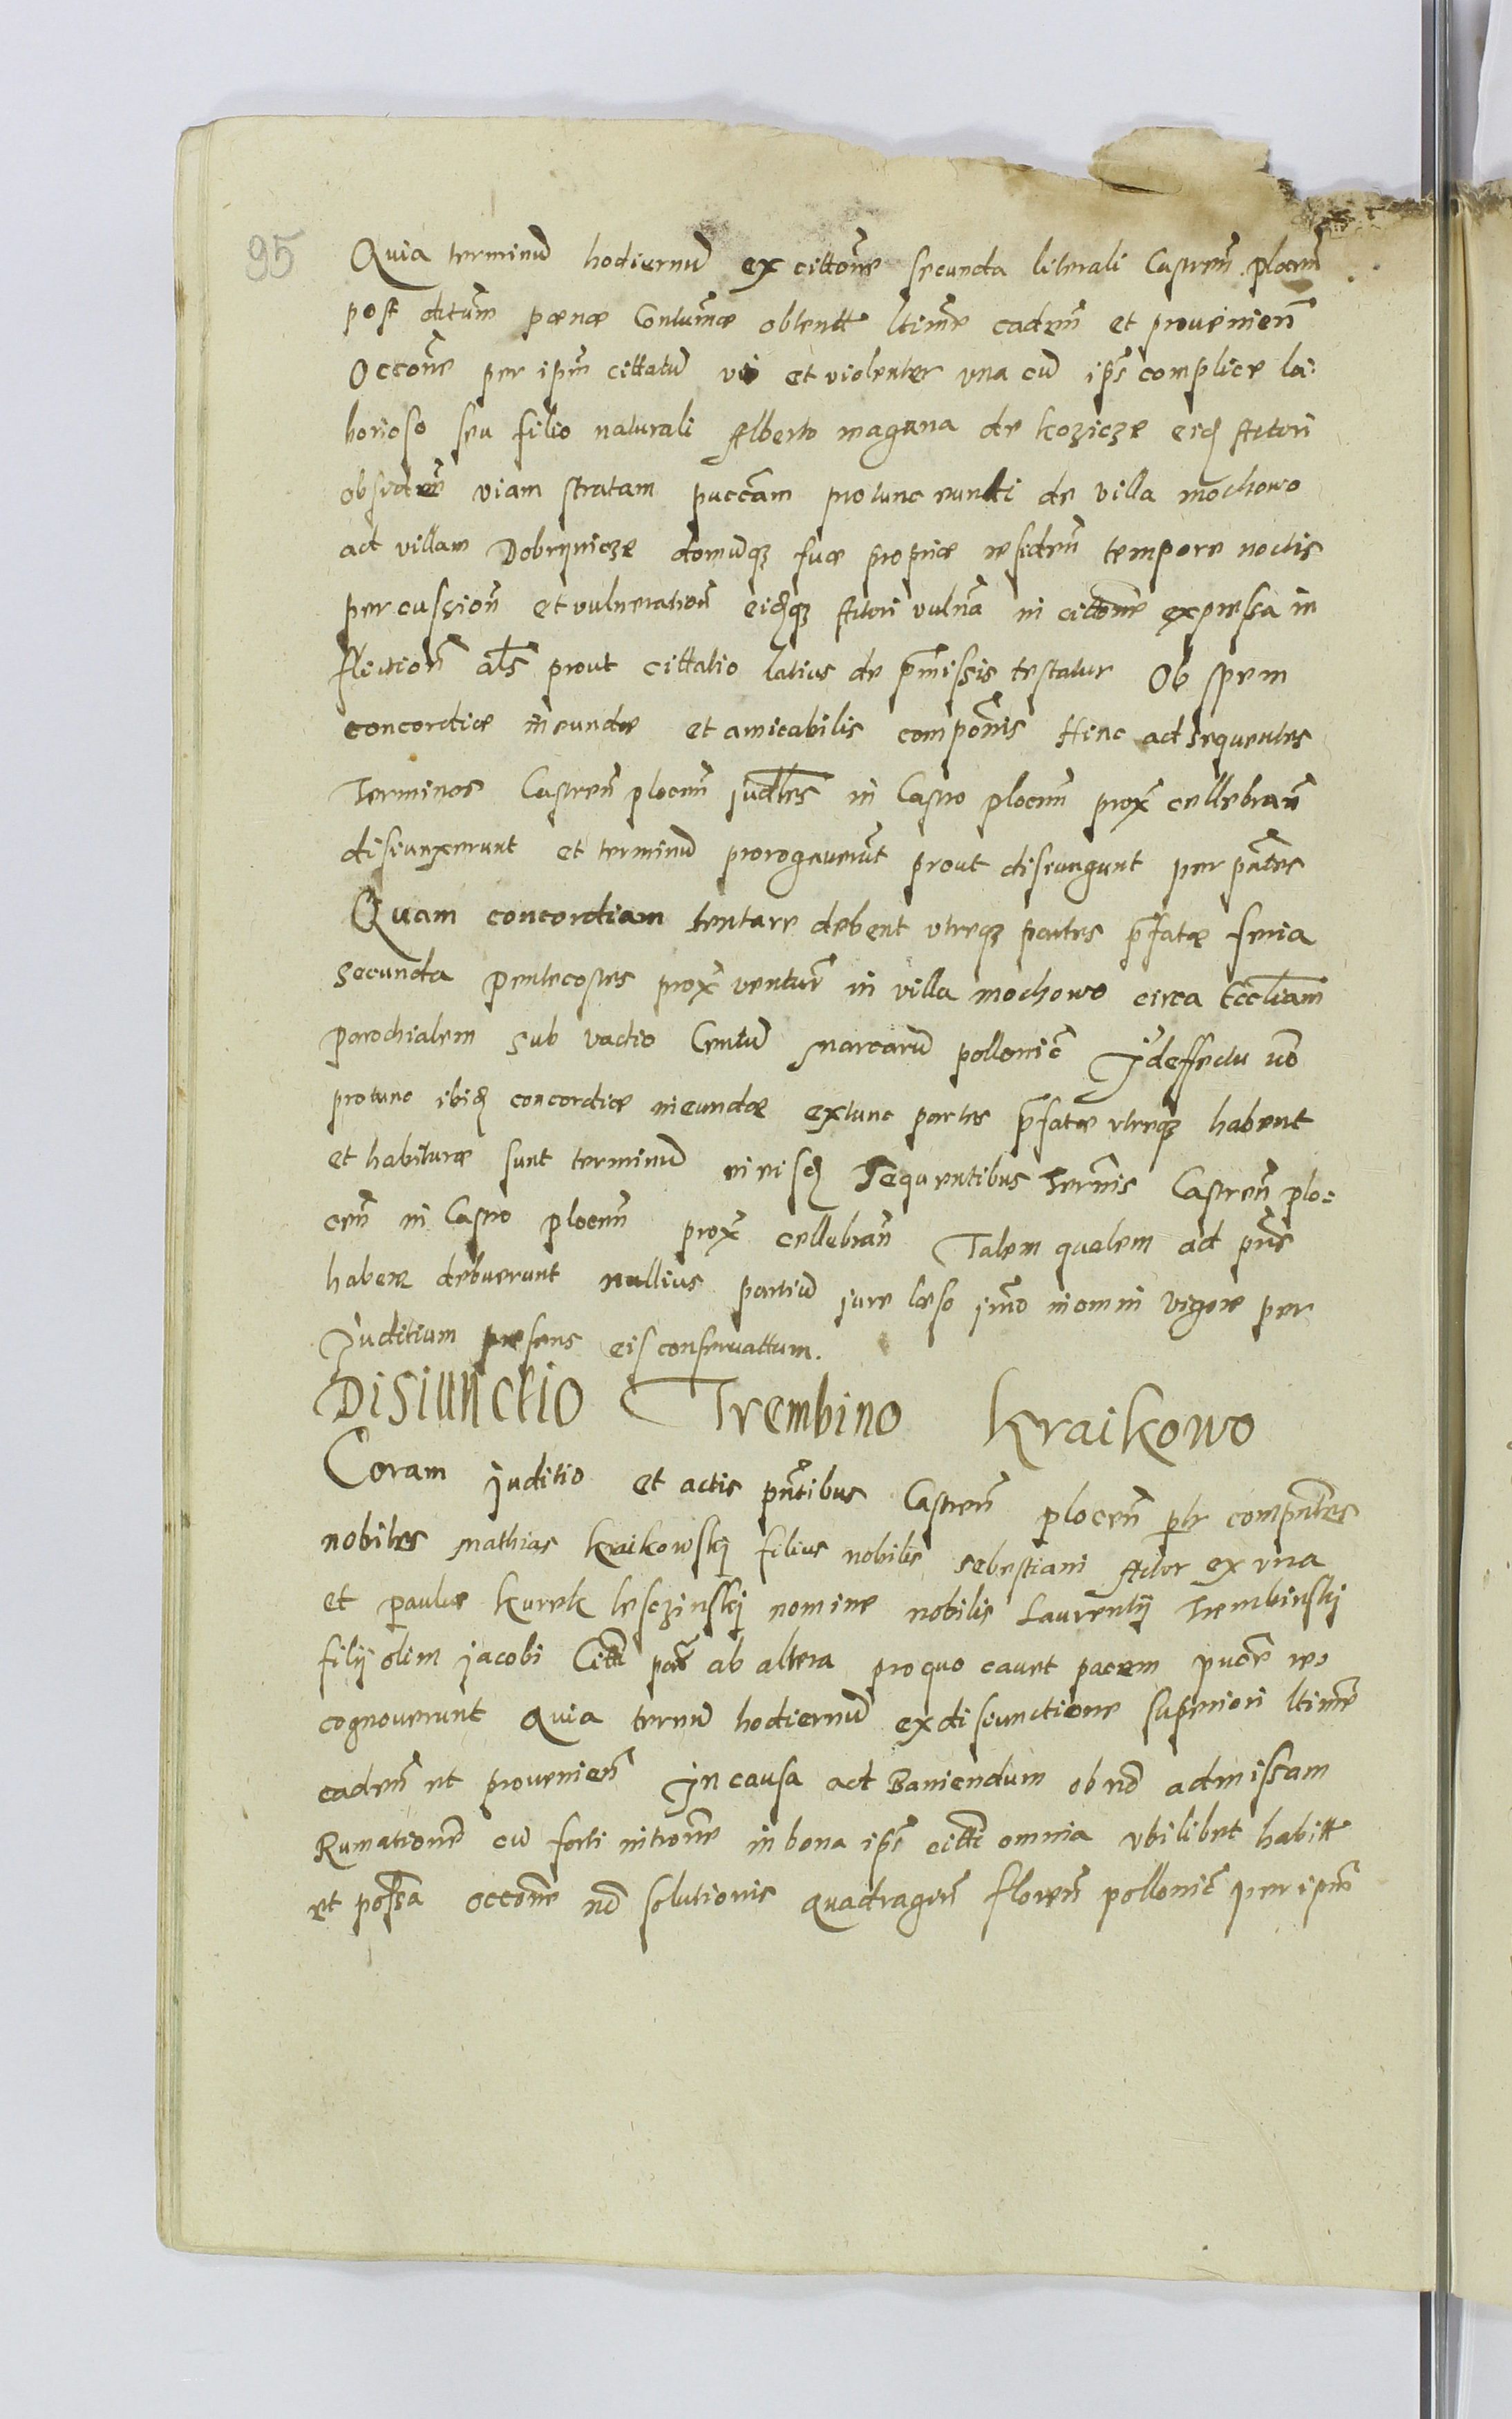 95
Quia terminũ hodiernũ ex cittoñe secunda literali Castreñ plocen̄
post ditum̃ pœnæ Contum̃æ obtentt ltime cadeñ et prouenieñ
Occoñe per ipm̃ cittatũ vi et violenter vna cũ ips̃ complice la:
borioso seu filio naturali Alberto magnna de koziczæ eid Actori
obsedeñ viam stratam puccãm protunc eunti de villa mochowo
ad villam Dobrzynicze domũqȝ suæ propriæ resideñ tempore noctis
percussioñ et vulneratioñ eidqȝ Actori vuln̄a in cittoñe expressa in
flictioñ als̃ prout cittatio latius de p̃missis testatur Ob spem
concordiæ ineundæ et amicabilis compoñis Hinc ad sequentes
Terminos Castreñ ploceñ judl̃es in Castro ploceñ prox̃ cellebrañ
disiunxerunt et terminũ prorogauerũt prout disiungunt per pñtes
Quam concordiam tentare debent vtreqȝ partes p̃fatæ feria
secunda pentecostes prox̃ ventur̃ in villa mochowo circa Eccl̃iam
parochialem sub vadio Centũ Marcarũ pollonic̃ In deffectu uo
protunc ibid concordiæ ineundæ extunc partes p̃fatæ vtreqȝ habent
et habituræ sunt terminũ in eisd Sequentibus Term̃is Castreñ plo:
ceñ in Castro ploceñ prox̃ cellebrañ Talem qualem ad pñs
habere debuerunt nullius partiũ jure læso im̃o in omni vigore per
Juditium præsens eis conseruattum.
Disiunctio Trembino Kraikowo
Coram juditio et actis pñtibus Castreñ ploceñ ptr compñtes
nobiles Mathias Kraikowskij filius nobilis Sebestiani Actor ex vna
et paulus kurek lesczinskij nomine nobilis Laurentij Trembinskij
filij olim jacobi Citti par̃ ab altera pro quo cauet pacem puore re:
cognouerunt Quia termũ hodiernũ ex disiunctione superiori ltime
cadeñ et prouenieñ In causa ad Baniendum ob nõ admissam
Rumationẽ cũ forti introm̃e in bona ips̃ citti omnia vbilibet habitt
et poss̃a occoñe nõ solutionis quadragiñ floreñ pollonic̃ per ipm̃